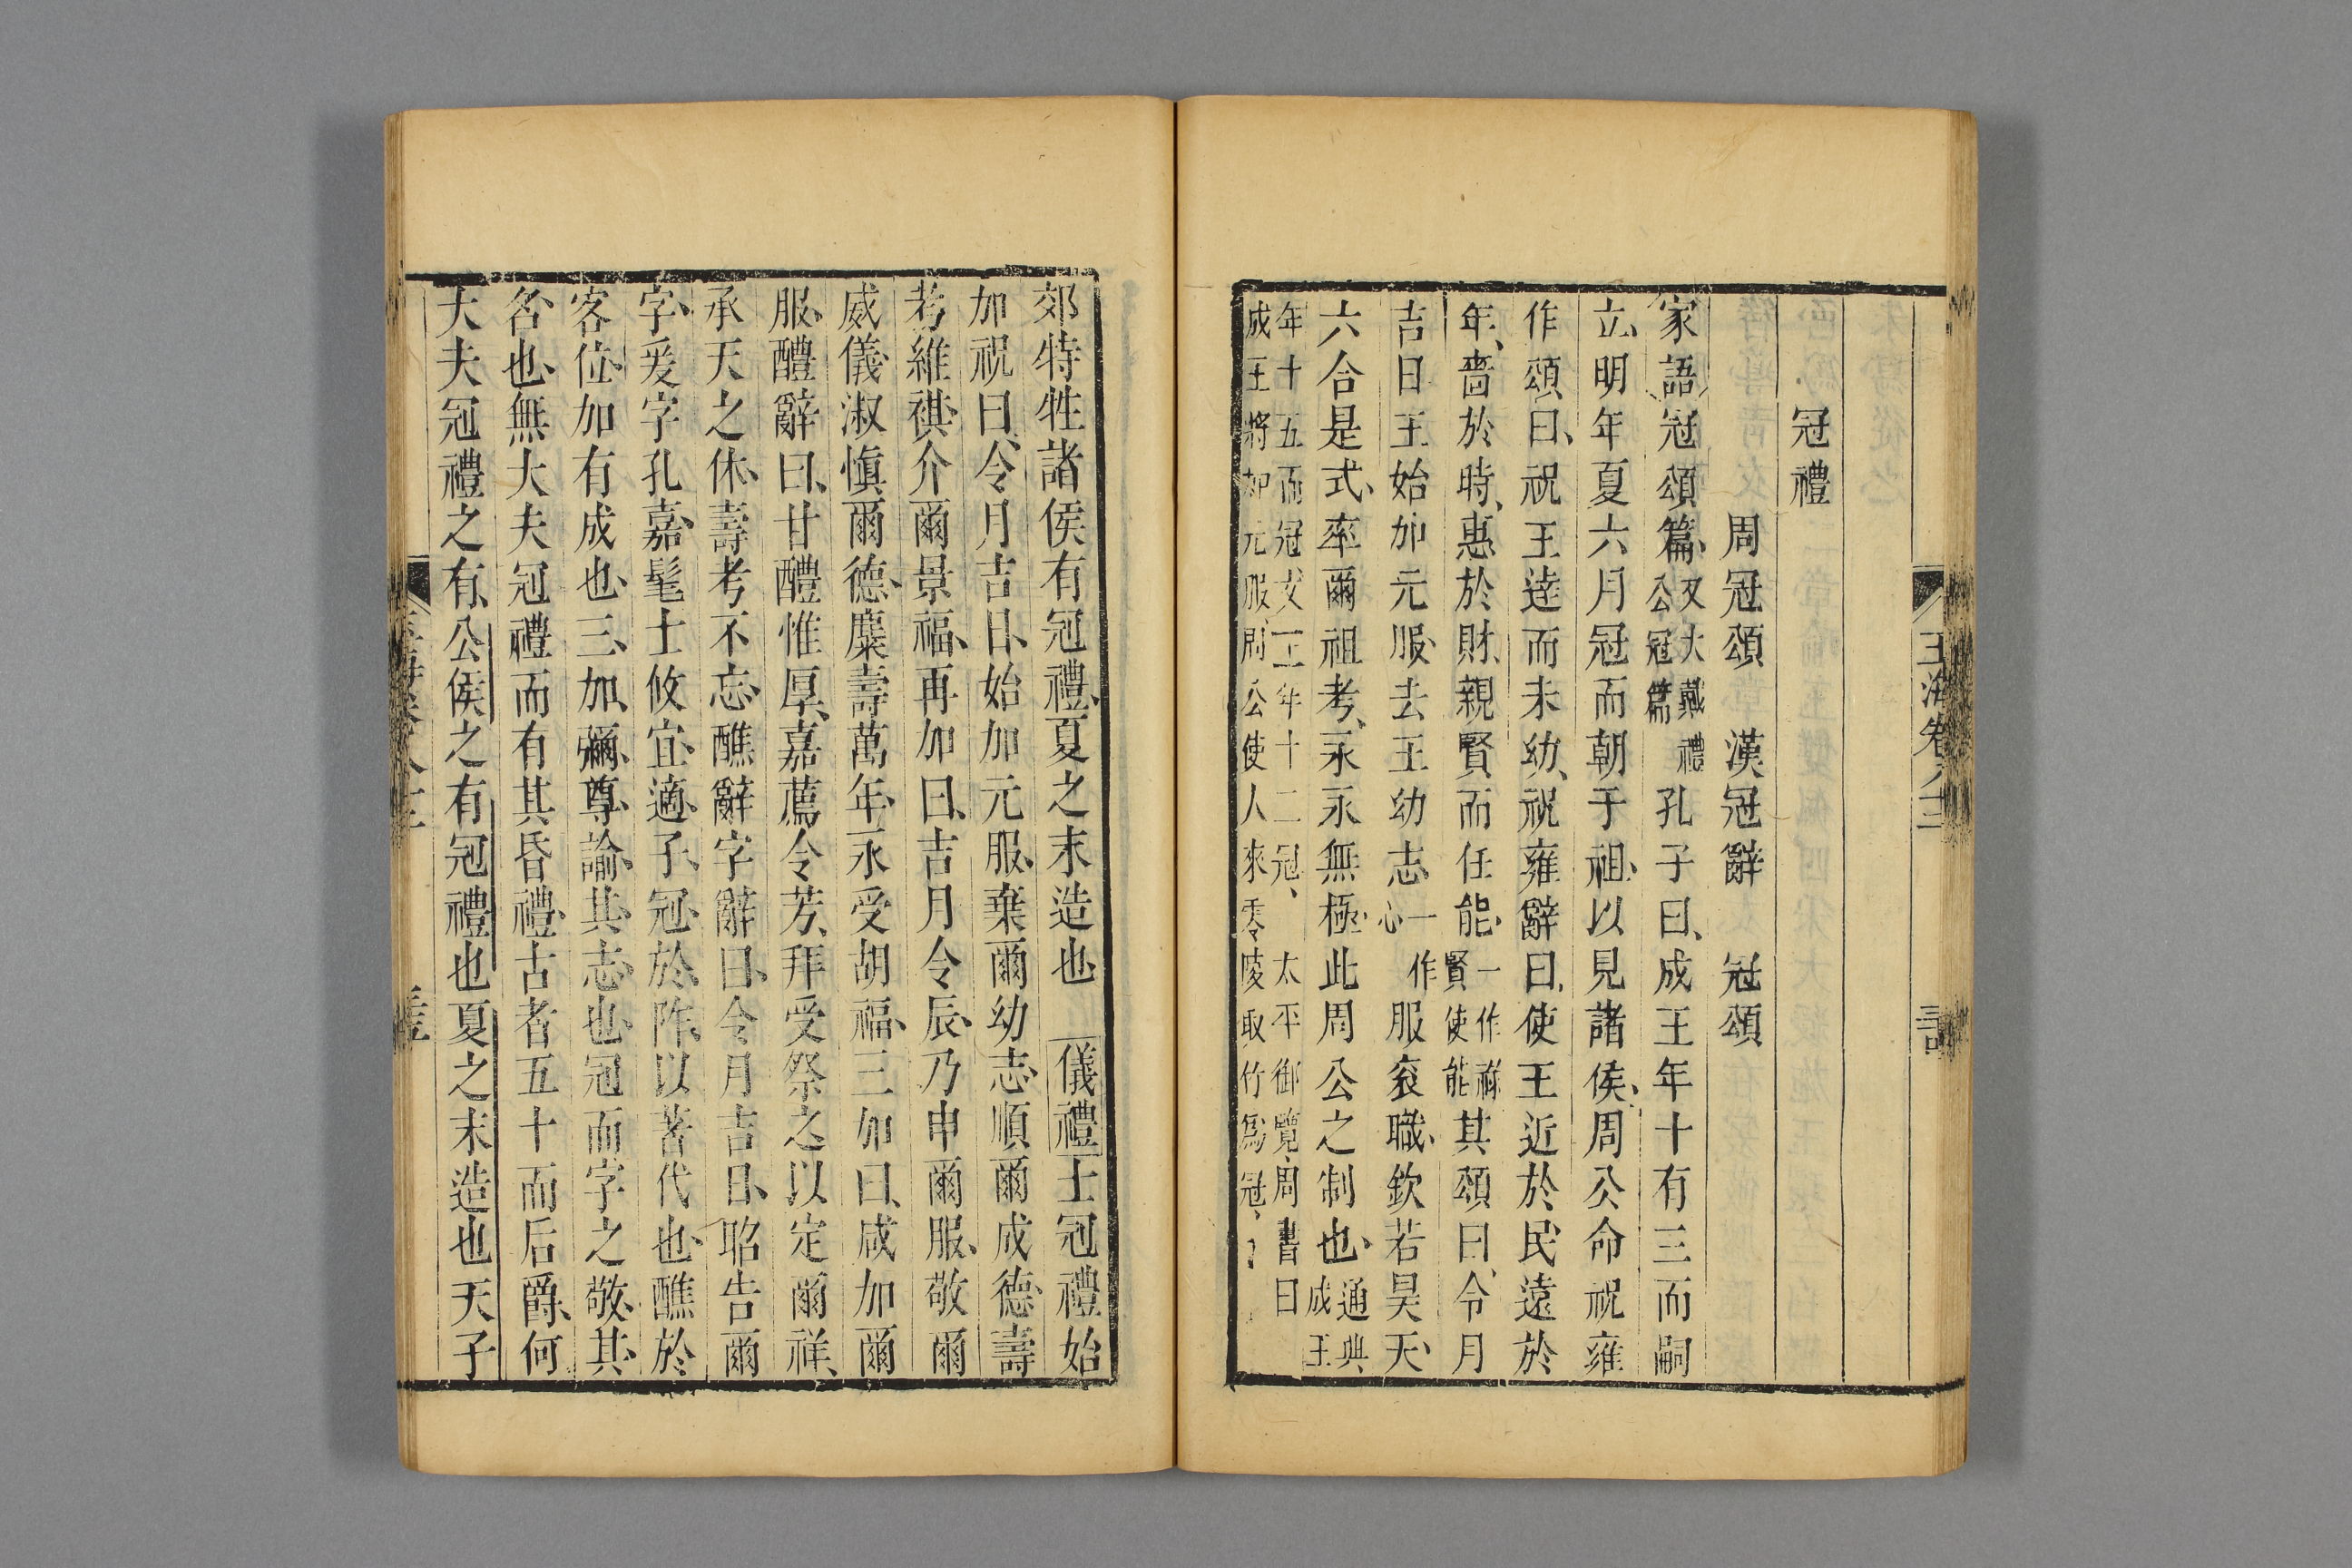 玉海卷八十二
冠禮
周冠頌　漢冠辭　冠頌
家語冠頌篇又大戴禮公冠篇孔子曰成王年十有三而嗣
立明年夏六月冠而朝于祖以見諸侯周公命祝雍
作頌曰祝王逹而未幼祝雍辭曰使王近於民遠於
年嗇於時惠於財親賢而任能一作襧賢使能其頌曰令月
吉日王始加元服去王幼志一作心服衮職欽若昊天
六合是式率爾祖考永永無極此周公之制也通典成王
年十五而冠文王年十二冠太平御覽周書曰
成王將加元服周公使人來零陵取竹爲冠
郊特牲諸侯有冠禮夏之末造也　儀禮士冠禮始
加祝曰令月吉日始加元服棄爾幼志順爾成德壽
考維祺介爾景福再加曰吉月令辰乃申爾服敬爾
威儀淑愼爾德麋壽萬年永受胡福三加曰咸加爾
服醴辭曰甘醴惟厚嘉薦令芳拜受祭之以定爾祥
承天之休壽考不忘醮辭字辭曰令月吉日昭告爾
字爰字孔嘉髦士攸宜適子冠於阼以著代也醮於
客位加有成也三加彌尊諭其志也冠而字之敬其
名也無大夫冠禮而有其昏禮古者五十而后爵何
大夫冠禮之有公侯之有冠禮也夏之末造也天子